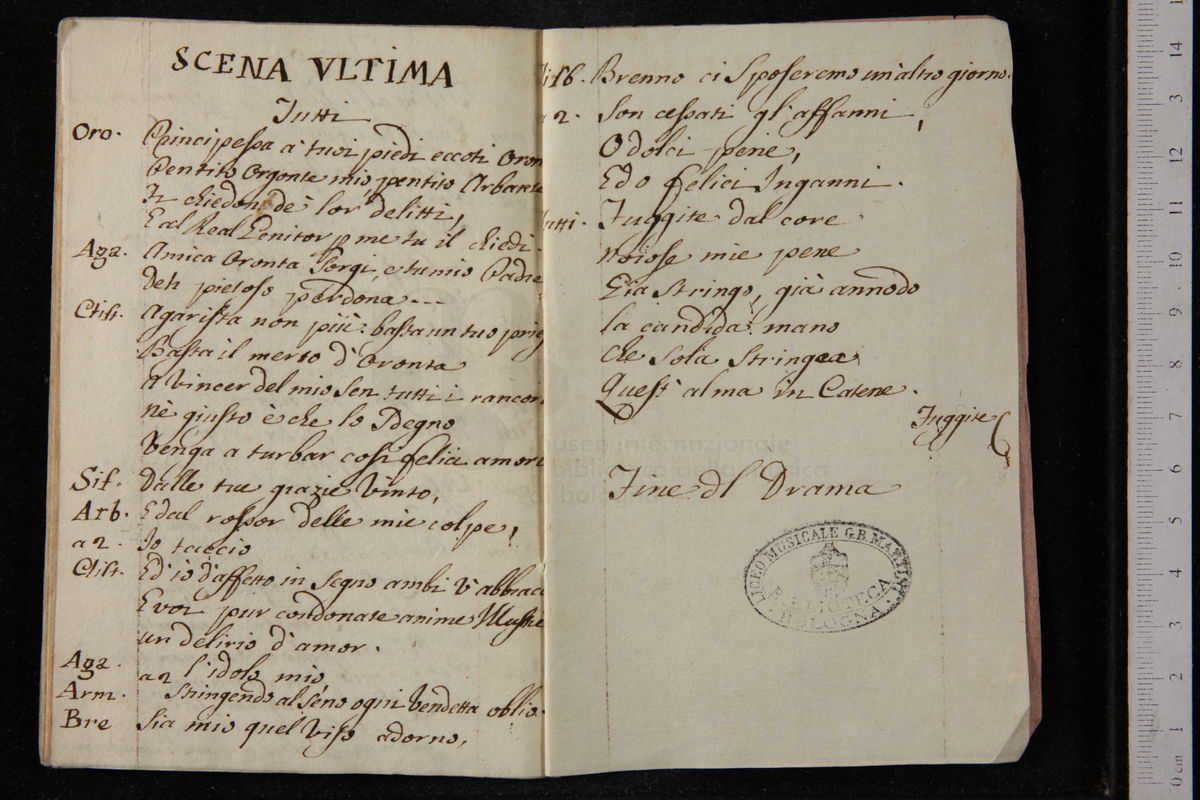 SCENA VLTIMA
Tutti
Oro. Principessa à tuoi piedi eccoti Oron
Pentito Orgonte mio, pentito Arbante
Ti chiedon de' lor delitti,
E al Real Genitor p me tu il chiedi.
Aga. Amica Oronta Sorgi, e tu mio Padre
deh pietoso perdona---
Clist. Agarista non più: basta un tuo prieg
Basta il merto d'Oronta
A vincer del mio sen tutti i rancori
nè giusto è che lo Sdegno
Venga a turbar così felici amori
Sif. Dalle tue grazie Vinto,
Arb. E dal rossor delle mie colpe,
a 2. Io taccio
Clist. Ed' io d'affetto in Segno ambi V'abbrac
E voi pur condonate anime Illustri
un delirio d'amor.
Aga. a2 l'idolo mio
Arm. Stringendo al Seno ogni Vendetta oblio.
Bre Sia mio quel Viso adorno,
Brenno ci Sposeremo un'altro giorno.
2. Son cessati gl'affanni,
O dolci pene,
Ed o felici Inganni.
utti. Fuggite dal core
noiose mie pene
Già Stringo, già annodo
la candida mano
che Sola Stringea
Quest'alma in Catene.
Fuggite
Fine dl Drama
LICEO MUSICALE G.B. MARTINI
BIBLIOTECA
BOLOGNA
museo internazionale
biblioteca della musica
di bologna